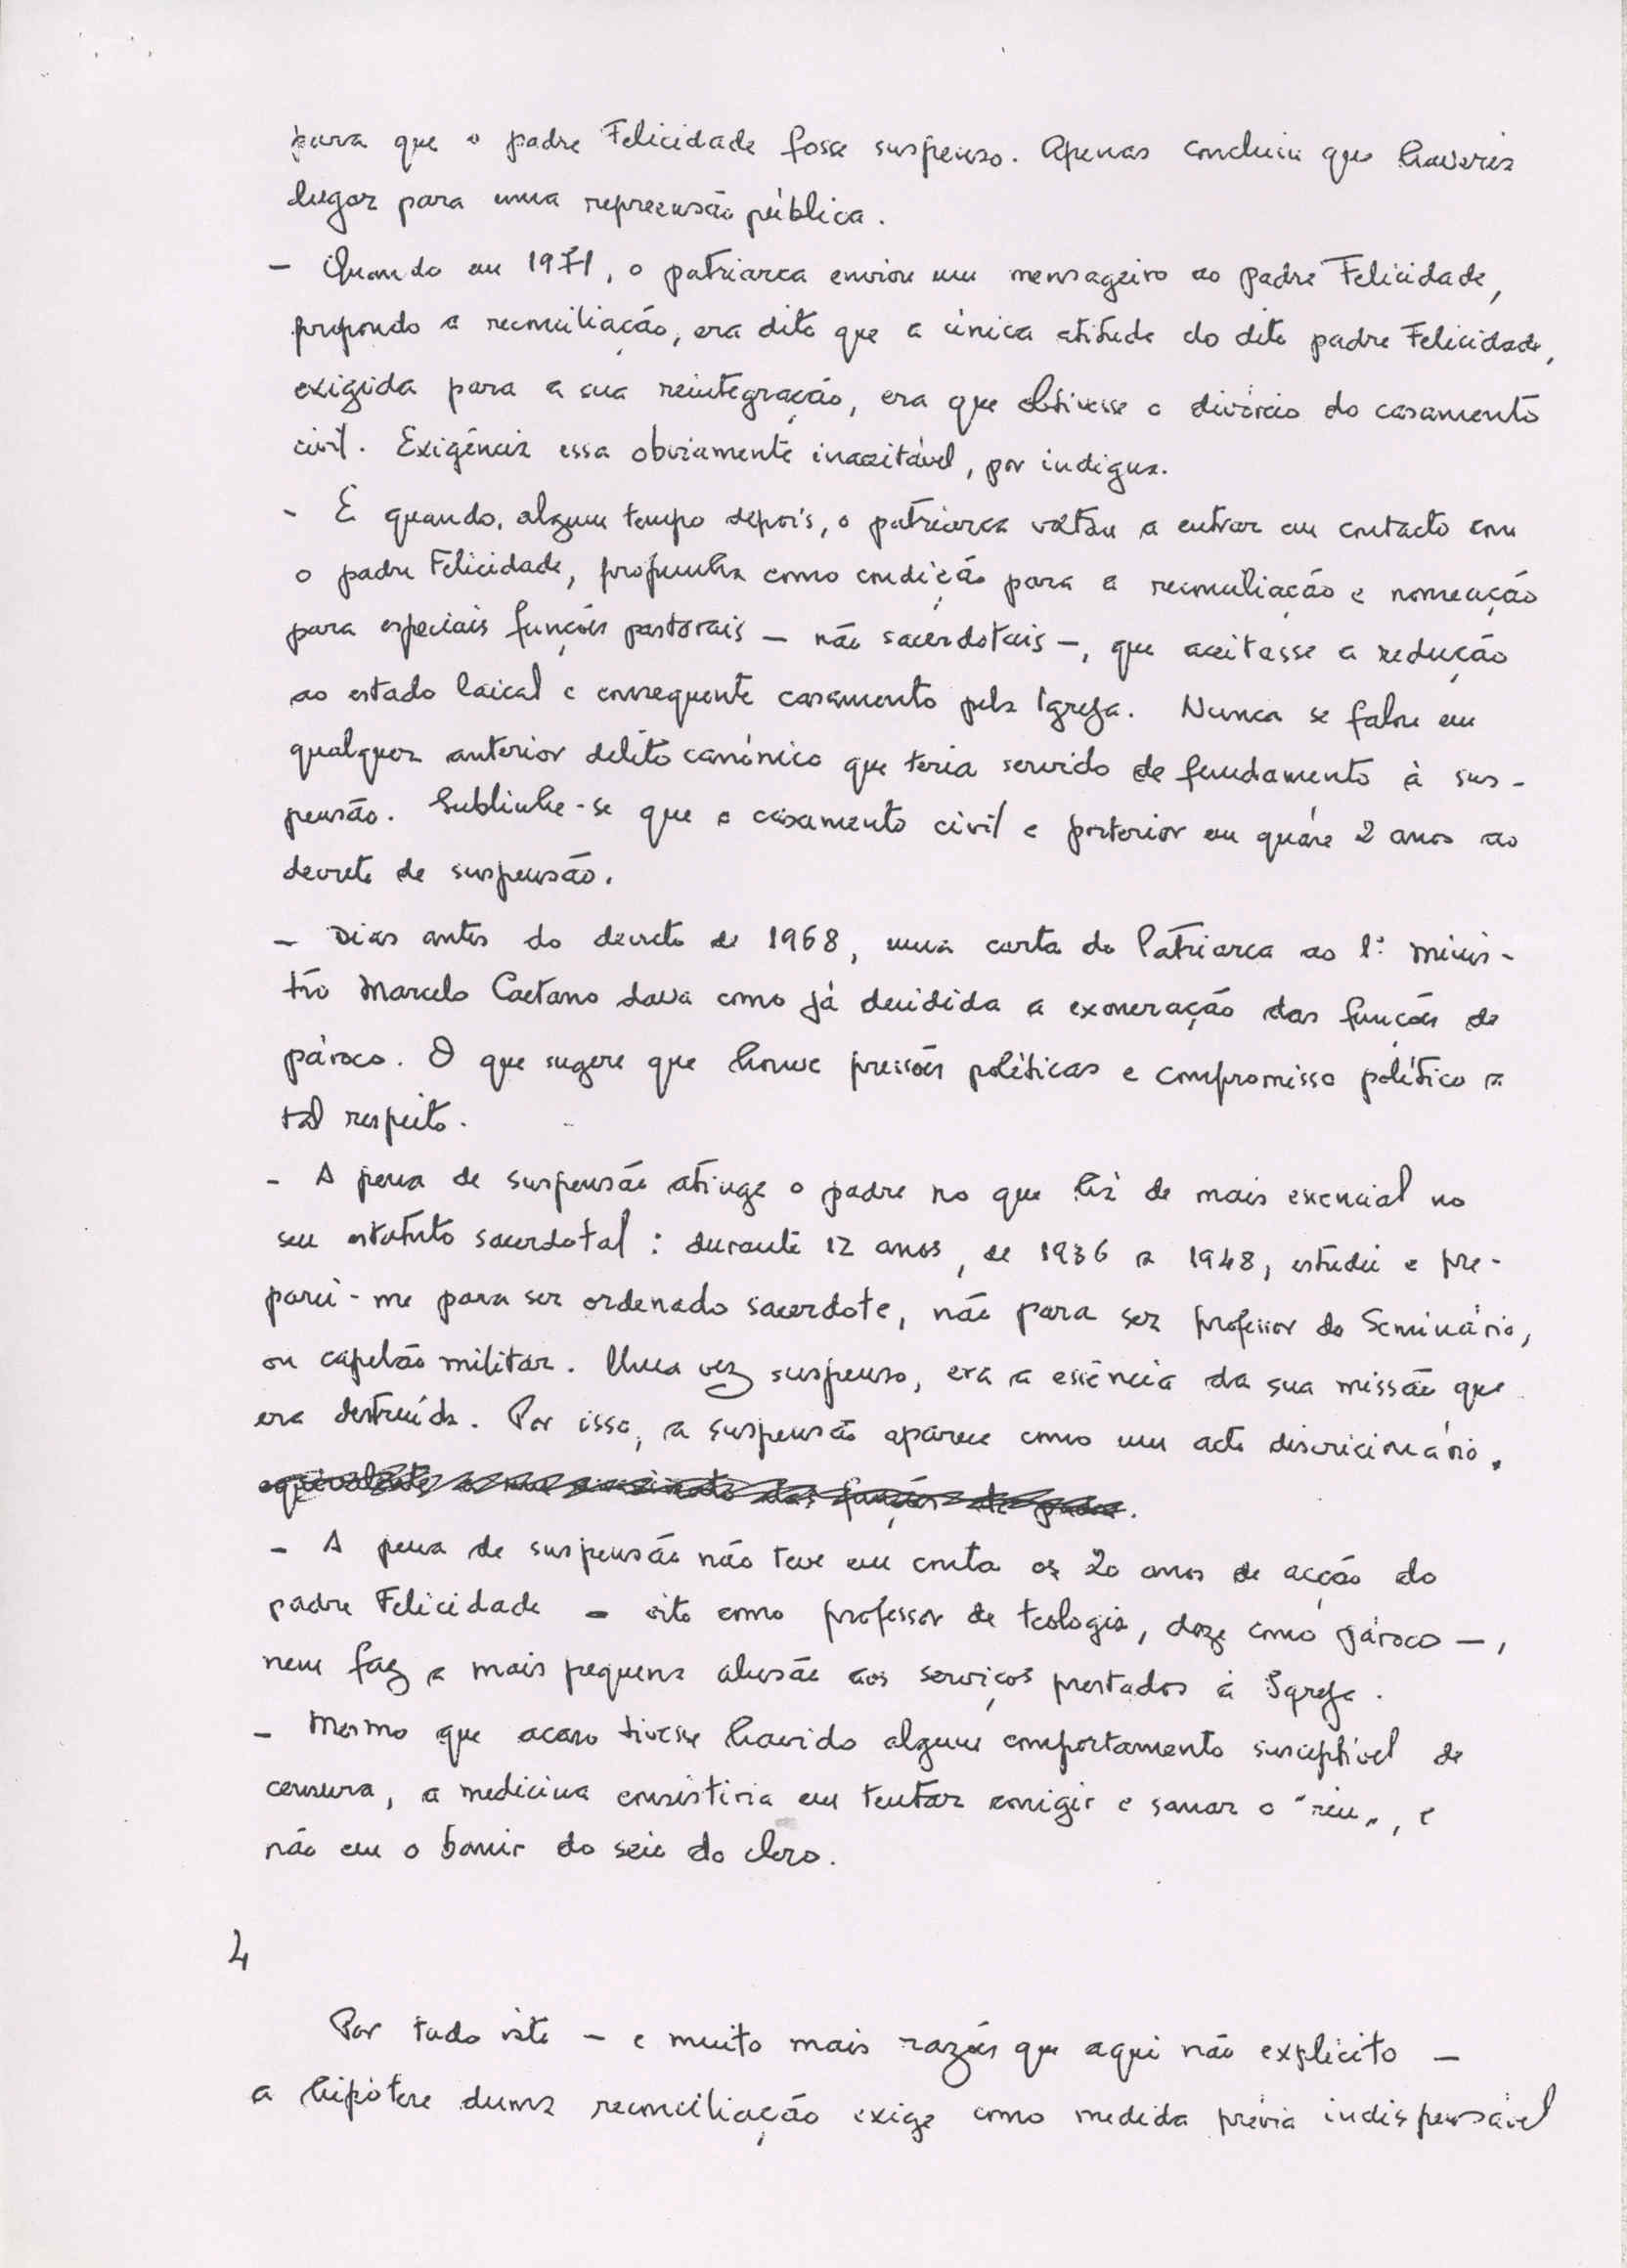 para que o padre Felicidade fosse suspenso. Apenas concluiu que haveria
lugar para uma repreensão pública.
— Quando em 1971, o patriarca enviou um mensageiro ao padre Felicidade,
propondo a reconciliação, era dito que a única atitude do dito padre Felicidade,
exigida para a sua reintegração, era que obtivesse o divórcio do casamento
civil. Exigência essa obviamente inaceitável, por indigna.
- E quando, algum tempo depois, o patriarca voltou a entrar em contacto com
o padre Felicidade, propunha como condição para a reconciliação e nomeação
para especiais funções pastorais — não sacerdotais —, que aceitasse a redução
ao estado laical e consequente casamento pela Igreja. Nunca se falou em
qualquer anterior delito canónico que teria servido de fundamento à sus-
pensão. Sublinhe-se que o casamento civil é posterior em quáse 2 anos ao
decreto de suspensão.
— Dias antes do decreto de 1968, uma carta do Patriarca ao 1º minis-
tro Marcelo Caetano dava como já decidida a exoneração das funções de
pároco. O que sugere que houve pressões políticas e compromisso político a
tal respeito.
- A pena de suspensão atinge o padre no que há de mais essencial no
seu estatuto sacerdotal: durante 12 anos, de 1936 a 1948, estudei e pre-
parei-me para ser ordenado sacerdote, não para ser professor do Seminário,
ou capelão militar. Uma vez suspenso, era a essência da sua missão que
era destruída. Por isso, a suspensão aparece como um acto discricionário.
equivalente das funções de padre.
— A pena de suspensão não teve em conta os 20 anos de acção do
padre Felicidade — oito como professor de teologia, doze como pároco —,
nem faz a mais pequena alusão aos serviços prestados à Igreja.
— Mesmo que acaso tivesse havido algum comportamento susceptível de
censura, a medicina consistiria em tentar corrigir e sanar o "réu", e
não em o banir do seio do clero.
4
Por tudo isto — e muito mais razões que aqui não explicito —
a hipótese duma reconciliação exige como medida prévia indispensável